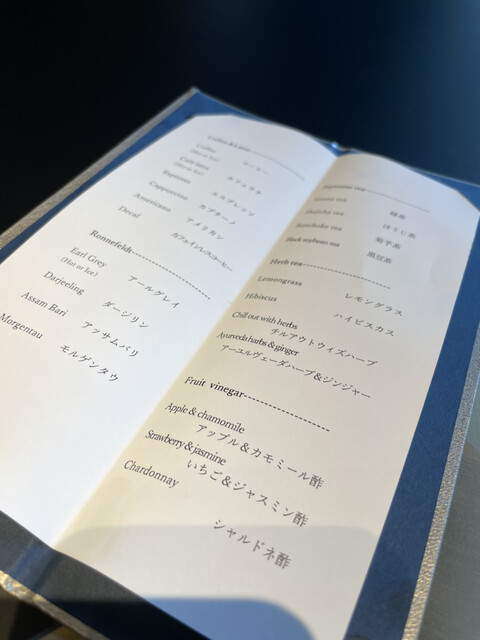 Coffee & Latte
Coffee
(Hot or Ice)
コーヒー
Café latte
(Hot or Ice)
カフェラテ
Espresso
エスプレッソ
Cappuccino
カプチーノ
Americano
アメリカン
Decaf
カフェインレスコーヒー
Ronnefeldt
Earl Grey
(Hot or Ice)
アールグレイ
Darjeeling
ダージリン
Assam Bari
アッサムバリ
Morgentau
モルゲンタウ
Japanese tea
Green tea
緑茶
Hojicha tea
ほうじ茶
菊芋茶
Black soybean tea
黒豆茶
Herb tea
Lemongrass
レモングラス
Hibiscus
ハイビスカス
Chill out with herbs
チルアウトウィズハーブ
Ayurveda harbs & ginger
アーユルヴェーダハーブ&ジンジャー
Fruit vinegar
Apple & chamomile
アップル&カモミール酢
Strawberry & jasmine
いちご&ジャスミン酢
Chardonnay
シャルドネ酢